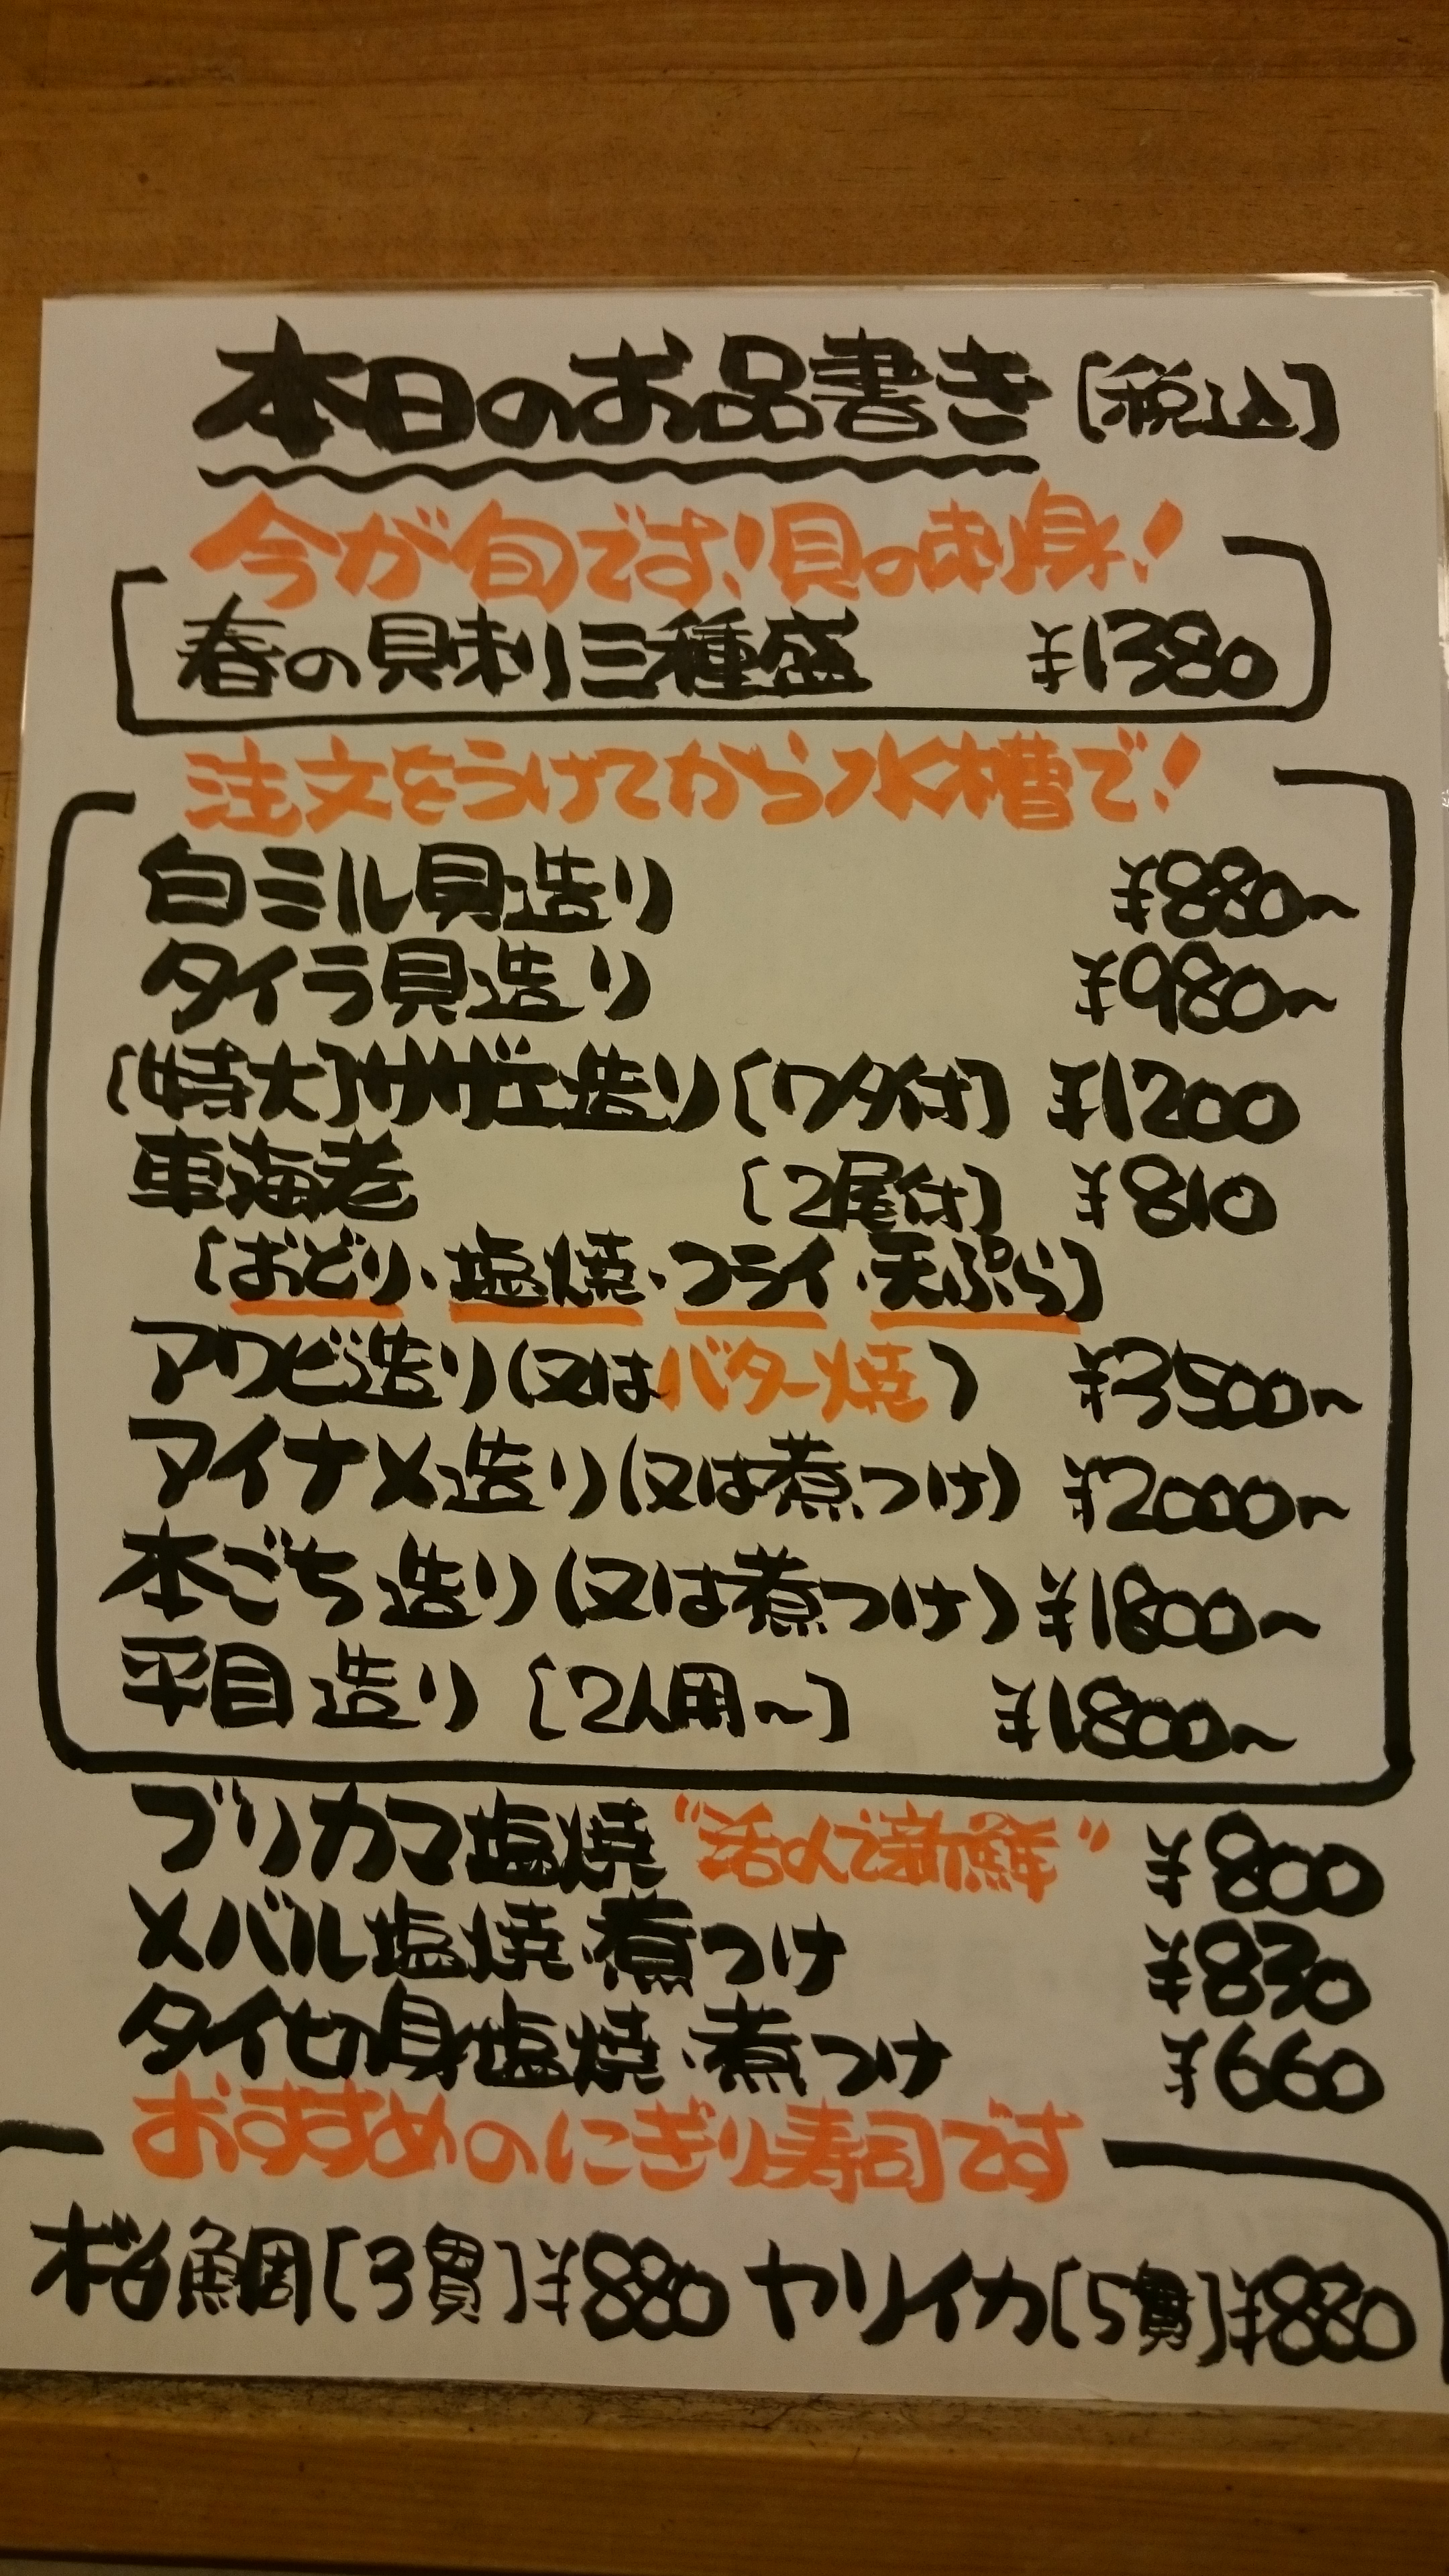 本日のお品書き [税込]
今が旬です!貝の刺身!
春の貝刺三種盛 ¥1380
注文をうけてから水槽で!
白ミル貝造り ¥880〜
タイラ貝造り ¥980〜
[特大]サザエ造り[ワタ付] ¥1200
車海老 [2尾付] ¥810
[おどり・塩焼・フライ・天ぷら]
アワビ造り(又はバター焼) ¥3500〜
アイナメ造り(又は煮つけ) ¥2000〜
本ごち造り(又は煮つけ) ¥1800〜
平目造り [2人用〜] ¥1800〜
ブリカマ塩焼"活〆で新鮮" ¥800
メバル塩焼・煮つけ ¥830
タイ切身塩焼・煮つけ ¥660
おすすめのにぎり寿司です
桜鯛[3貫]¥880 ヤリイカ[5貫]¥880